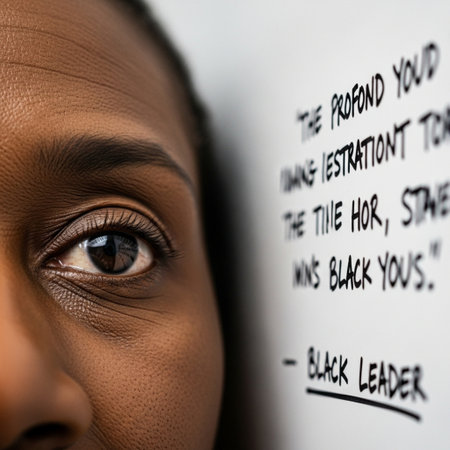 "THE PROFOND YOUD
IESTRATIONT TOR
THE TIIE HOR, STAVE
WINS BLACK YOUS."
— BLACK LEADER